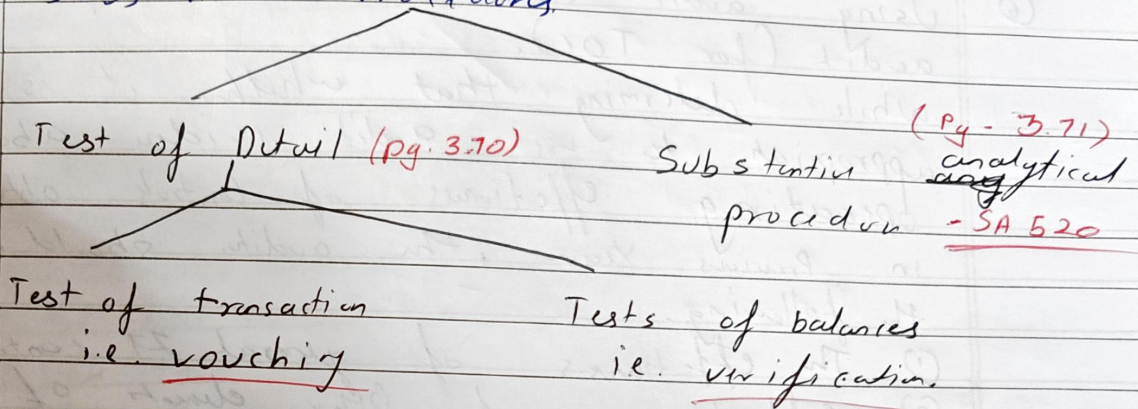 Test of Detail (pg. 3.70)
(Pg - 3.71)
Substantive analytical
procedure - SA 520
Test of transaction
i.e. vouching
Tests of balances
i.e. verification.